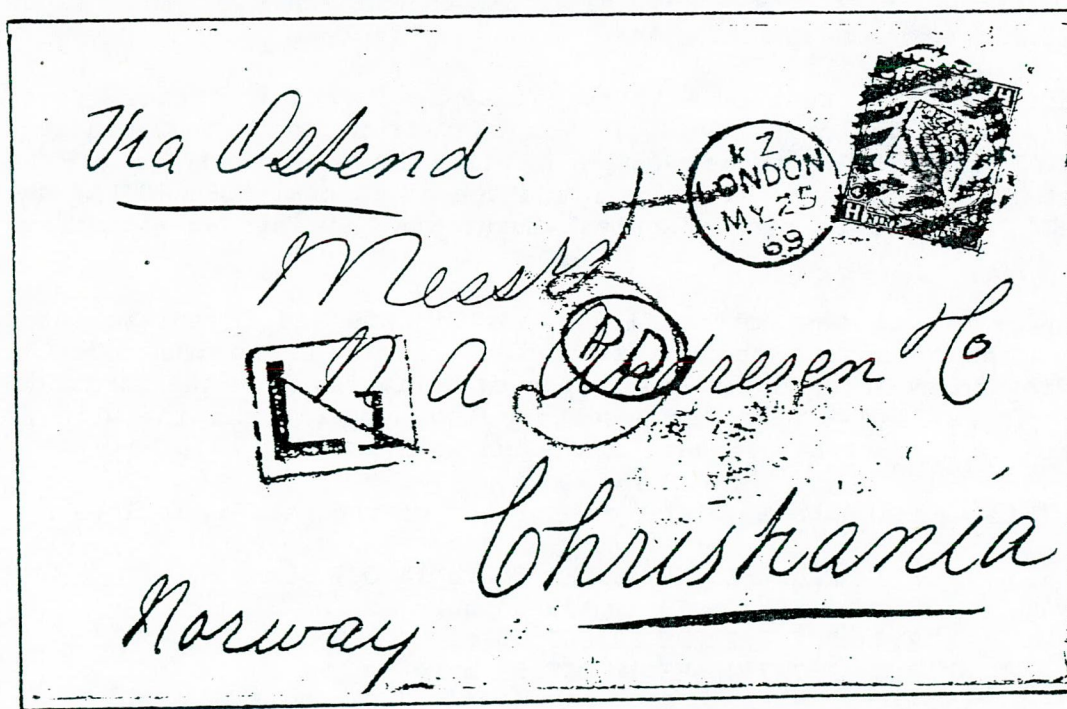 Via Ostend.
K Z
LONDON
MY 25
69
Messrs
PD
N A Andresen
L1
Christiania
Norway